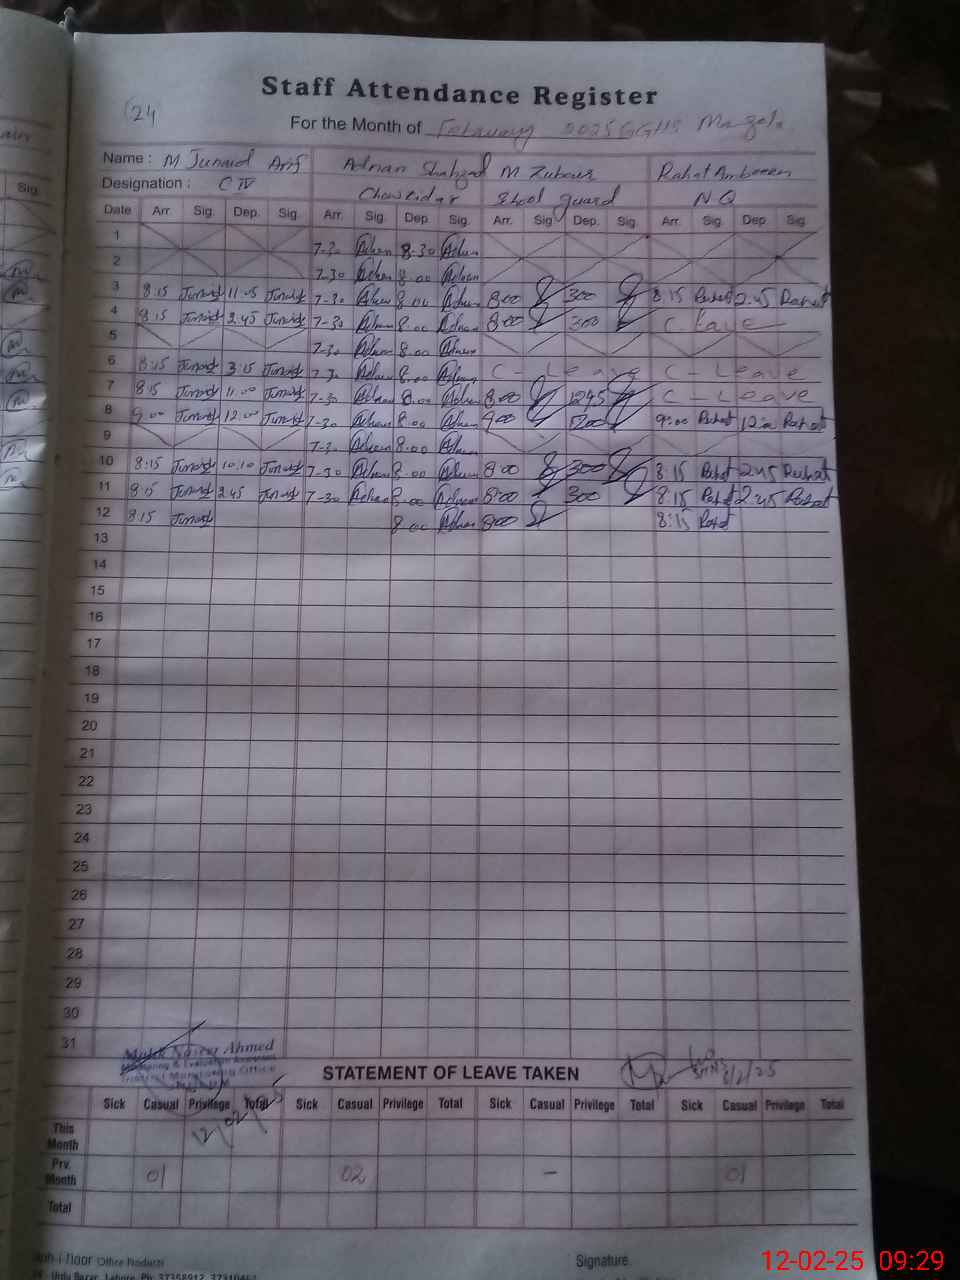 Staff Attendance Register
(24
For the Month of February 2025 GGHS
Name : M Junaid Arif Adnan Shahzad M Zubair Rahat Ambreen
Designation : C IV Chowkidar School guard N Q
Date Arr. Sig. Dep. Sig. Arr. Sig. Dep. Sig. Arr. Sig. Dep. Sig. Arr. Sig. Dep. Sig.
1 7-30 Adnan 8-30 Adnan
2 7-30 Adnan 8.00 Adnan
3 8:15 Junaid 11.05 Junaid 7-30 Adnan 8.00 Adnan 8:00 300 8:15 Rahat 2.45 Rahat
4 8:15 Junaid 2.45 Junaid 7-30 Adnan 8.00 Adnan 8:00 300 C. Leave
5 7-30 Adnan 8.00 Adnan
6 8:15 Junaid 3:15 Junaid 7-30 Adnan 8.00 Adnan C - Leave C - Leave
7 8:15 Junaid 11.00 Junaid 7-30 Adnan 8.00 Adnan 8:00 1245 C - Leave
8 9.00 Junaid 12.00 Junaid 7-30 Adnan 8.00 Adnan 900 1200 9:00 Rahat Rahat
9 7-30 Adnan 8.00 Adnan
10 8:15 Junaid 10:10 Junaid 7-30 Adnan 8.00 Adnan 8:00 300 8:15 Rahat 2.45 Rahat
11 8:15 Junaid 2.45 Junaid 7-30 Adnan 8.00 Adnan 8:00 300 8:15 Rahat 2.45 Rahat
12 8:15 Junaid 8.00 Adnan 8:00 8:15 Rahat
13
14
15
16
17
18
19
20
21
22
23
24
25
26
27
28
29
30
31
Ahmed
Monitoring & Evaluation Assistant
District Monitoring Office
STATEMENT OF LEAVE TAKEN
6/2/25
Sick Casual Privilege Total Sick Casual Privilege Total Sick Casual Privilege Total Sick Casual Privilege Total
12/02/25
This Month
Prv. Month 01 02 - 01
Total
Office Products
Signature.
Urdu Bazar, Lahore. Ph: 37358912
12-02-25 09:29